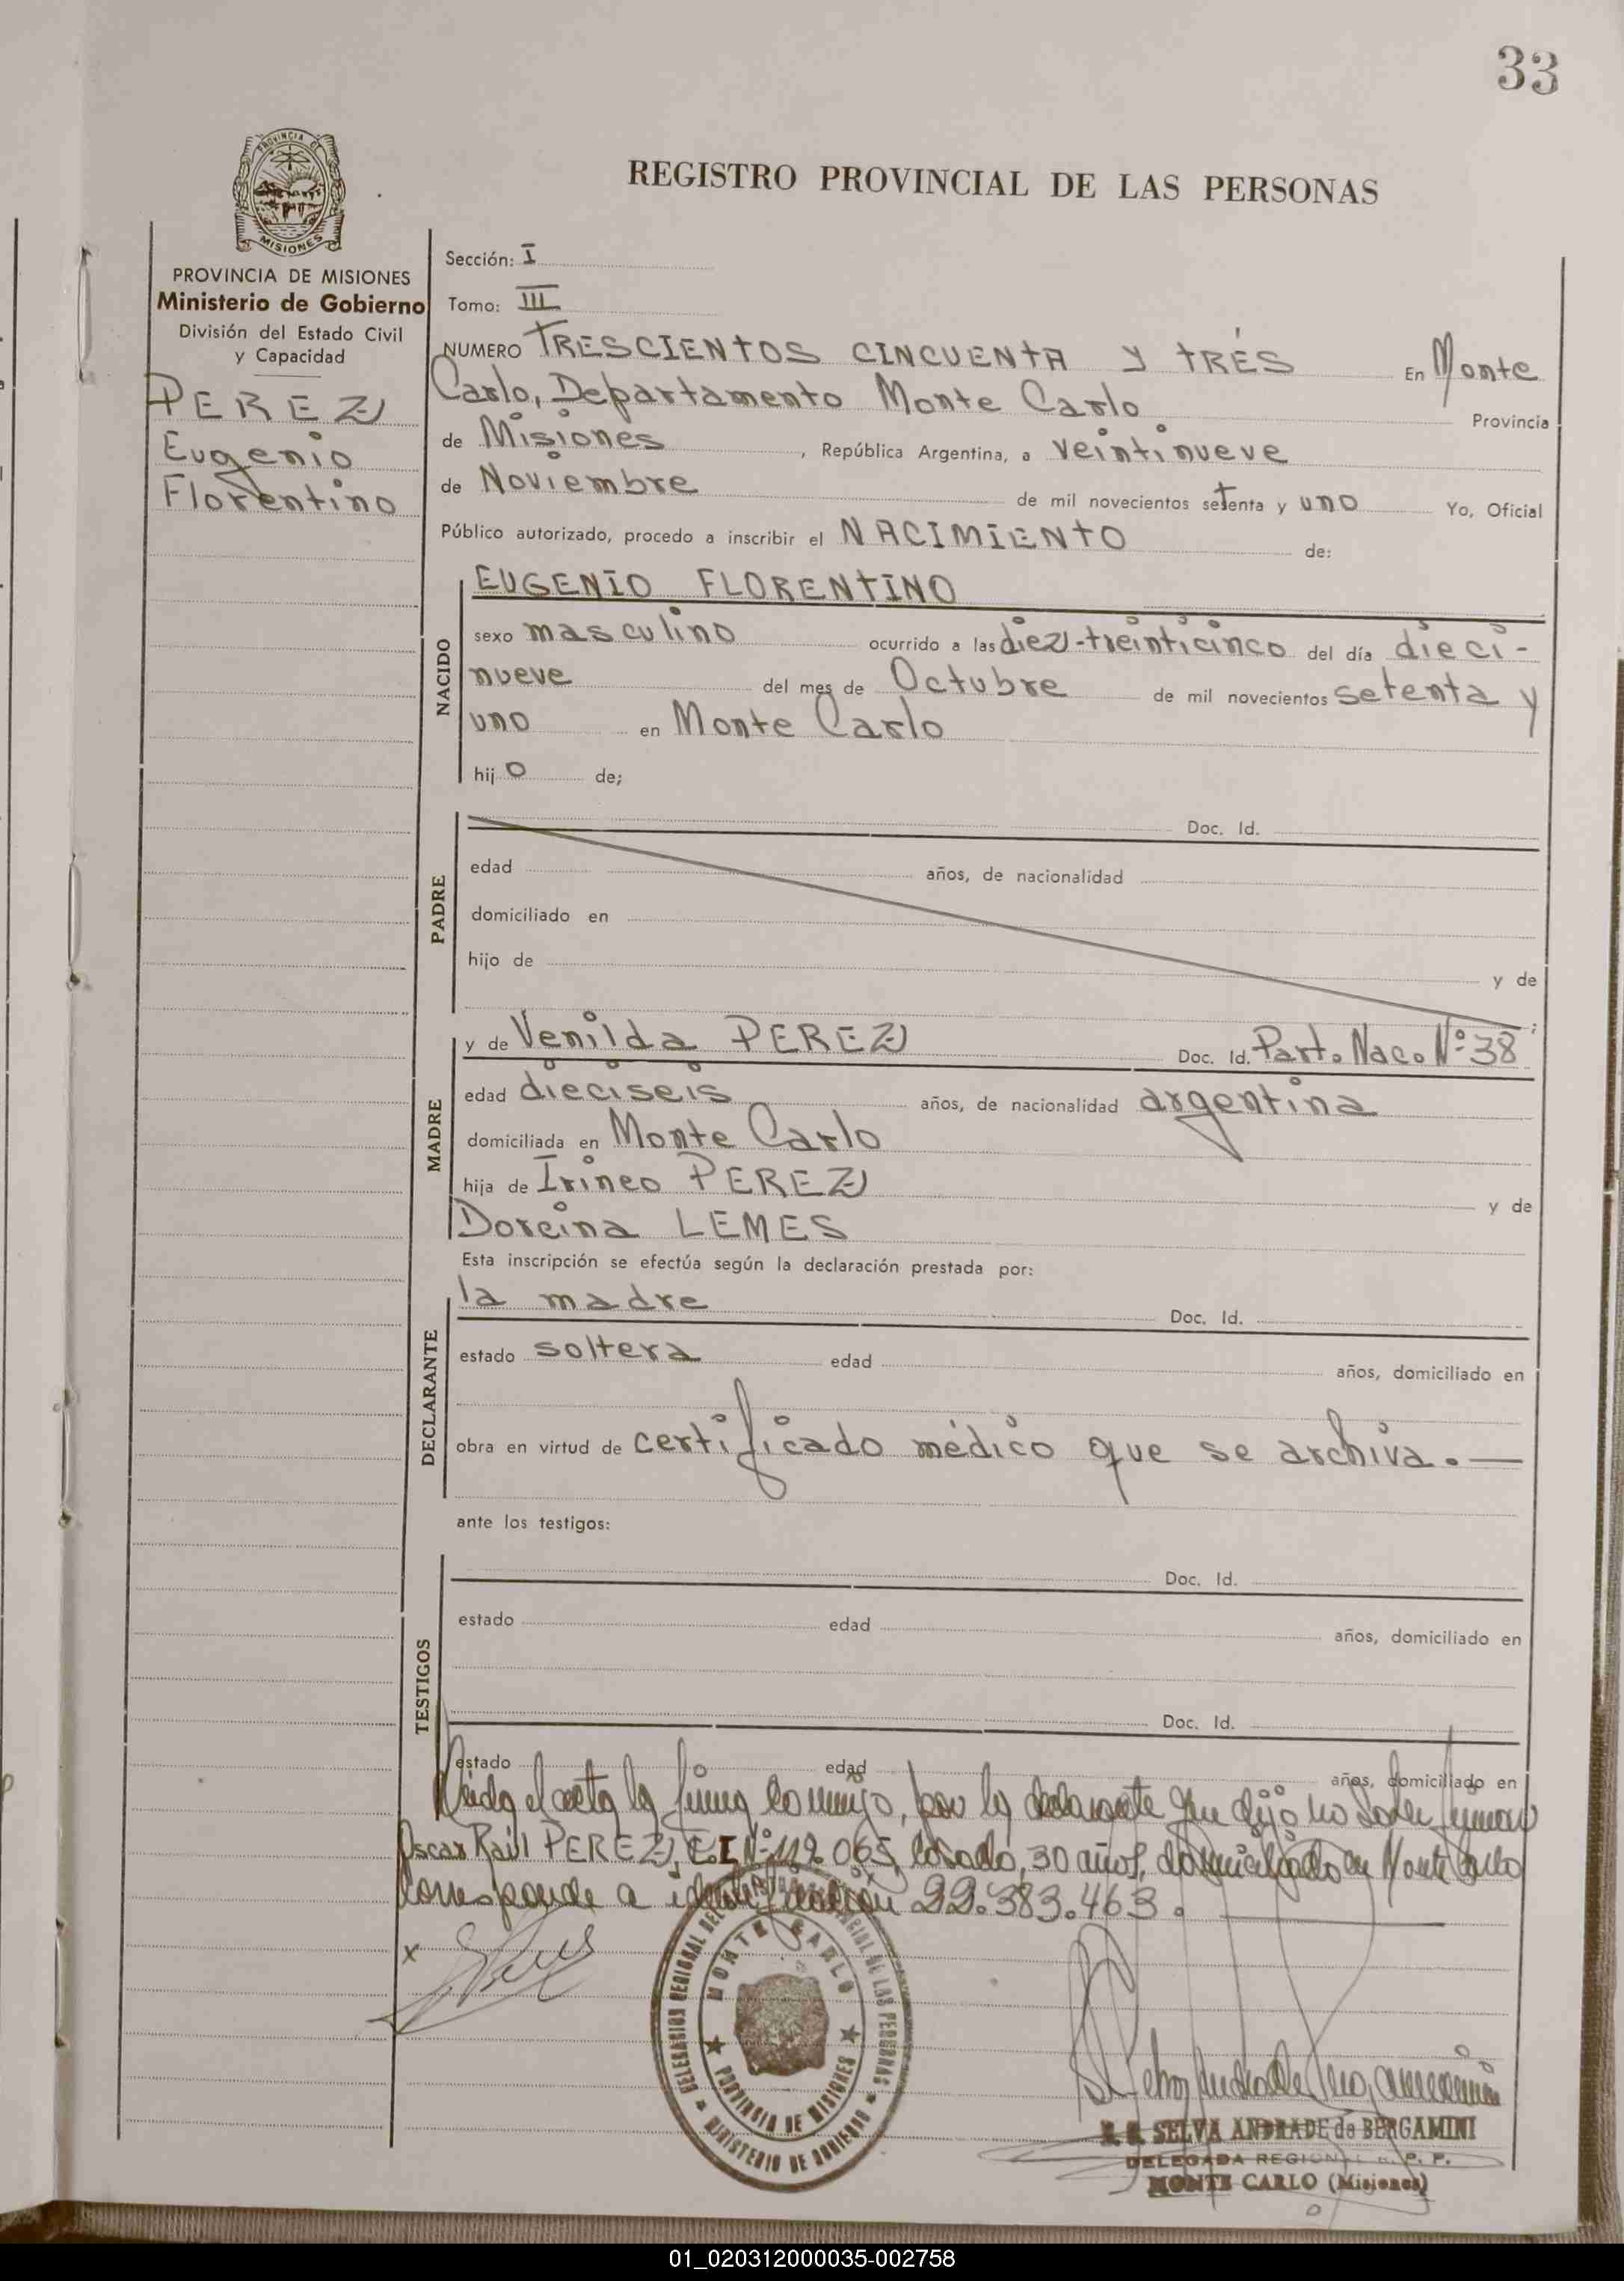 33
REGISTRO PROVINCIAL DE LAS PERSONAS
PROVINCIA DE
MISIONES
PROVINCIA DE MISIONES
Ministerio de Gobierno
División del Estado Civil
y Capacidad
PEREZ
Eugenio
Florentino
Sección: I
Tomo: III
NUMERO TRESCIENTOS CINCUENTA Y TRÉS En Monte
Carlo, Departamento Monte Carlo Provincia
de Misiones, República Argentina, a veintinueve
de Noviembre de mil novecientos setenta y uno Yo, Oficial
Público autorizado, procedo a inscribir el NACIMIENTO de:
NACIDO
EUGENIO FLORENTINO
sexo masculino ocurrido a las diez-treinticinco del día dieci-
nueve del mes de Octubre de mil novecientos setenta y
uno en Monte Carlo
hijo de;
PADRE
Doc. Id.
edad años, de nacionalidad
domiciliado en
hijo de y de
;
MADRE
y de Venilda PEREZ Doc. Id. Part. Nac. Nº 38
edad dieciseis años, de nacionalidad argentina
domiciliada en Monte Carlo
hija de Irineo PEREZ y de
Dorcina LEMES
Esta inscripción se efectúa según la declaración prestada por:
DECLARANTE
la madre Doc. Id.
estado soltera edad años, domiciliado en
obra en virtud de certificado médico que se archiva.—
ante los testigos:
TESTIGOS
Doc. Id.
estado edad años, domiciliado en
Doc. Id.
estado edad años, domiciliado en
Leida el acta la firma conmigo, por la declarante que dijo no saber firmar
Oscar Raúl PEREZ, C.I Nº 112.065, casado, 30 años, domiciliado en Monte Carlo
Corresponde a identificación 22.383.463.
x
MONTE CARLO
PROVINCIA DE MISIONES
DELEGACION REGIONAL DEL REGISTRO PROVINCIAL DE LAS PERSONAS
MINISTERIO DE GOBIERNO
SELVA ANDRADE de BERGAMINI
DELEGADA REGIONAL R. P. P.
MONTE CARLO (Misiones)
01_020312000035-002758